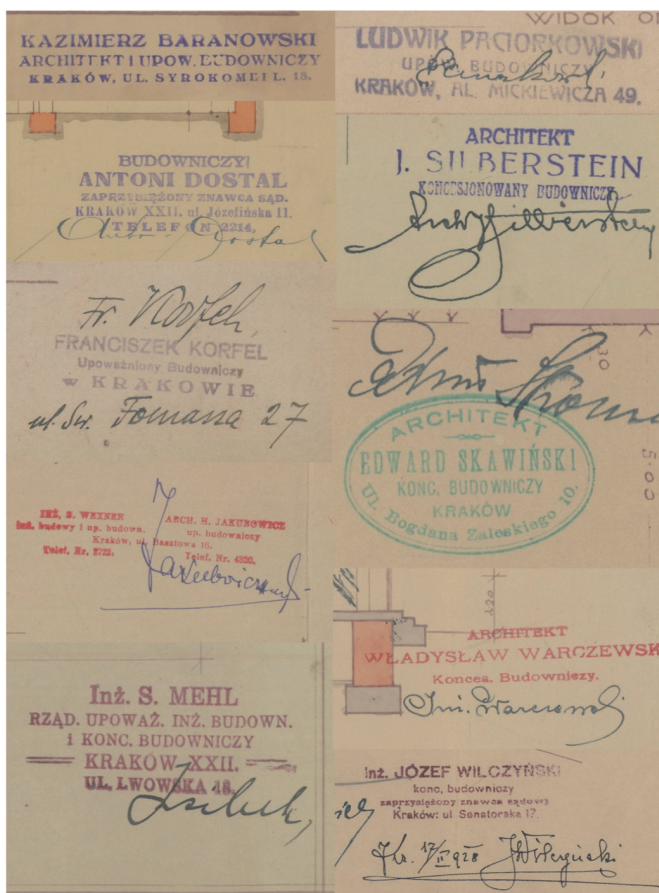 KAZIMIERZ BARANOWSKI
ARCHITEKT I UPOW. BUDOWNICZY
KRAKÓW, UL. SYROKOMLI L. 18.
BUDOWNICZY
ANTONI DOSTAL
ZAPRZYSIĘŻONY ZNAWCA SĄD.
KRAKÓW XXII. ul. Józefińska 11.
TELEFON 2214.
Fr. Korfel
FRANCISZEK KORFEL
Upoważniony Budowniczy
w KRAKOWIE
ul. Św. Tomasza 27
INŻ. S. WEXNER ARCH. H. JAKUBOWICZ
inż. budowy i up. budown. up. budowniczy
Kraków, ul. Basztowa 15.
Telef. Nr. 2722. Telef. Nr. 4320.
Jakubowicz
Inż. S. MEHL
RZĄD. UPOWAŻ. INŻ. BUDOWN.
i KONC. BUDOWNICZY
KRAKÓW XXII.
UL. LWOWSKA 18.
WIDOK
LUDWIK PACIORKOWSKI
UPOW. BUDOWNICZY
KRAKÓW, AL. MICKIEWICZA 49.
ARCHITEKT
J. SILBERSTEIN
KONCESJONOWANY BUDOWNICZY
Arch J Silberstein
30
5.00
ARCHITEKT
EDWARD SKAWIŃSKI
KONC. BUDOWNICZY
KRAKÓW
Ul. Bogdana Zaleskiego 10.
ARCHITEKT
WŁADYSŁAW WARCZEWSK
Konces. Budowniczy.
Inż. JÓZEF WILCZYŃSKI
konc. budowniczy
zaprzysiężony znawca sądowy
Kraków: ul Senatorska 17.
Kr. 17/II 928 JWilczyński